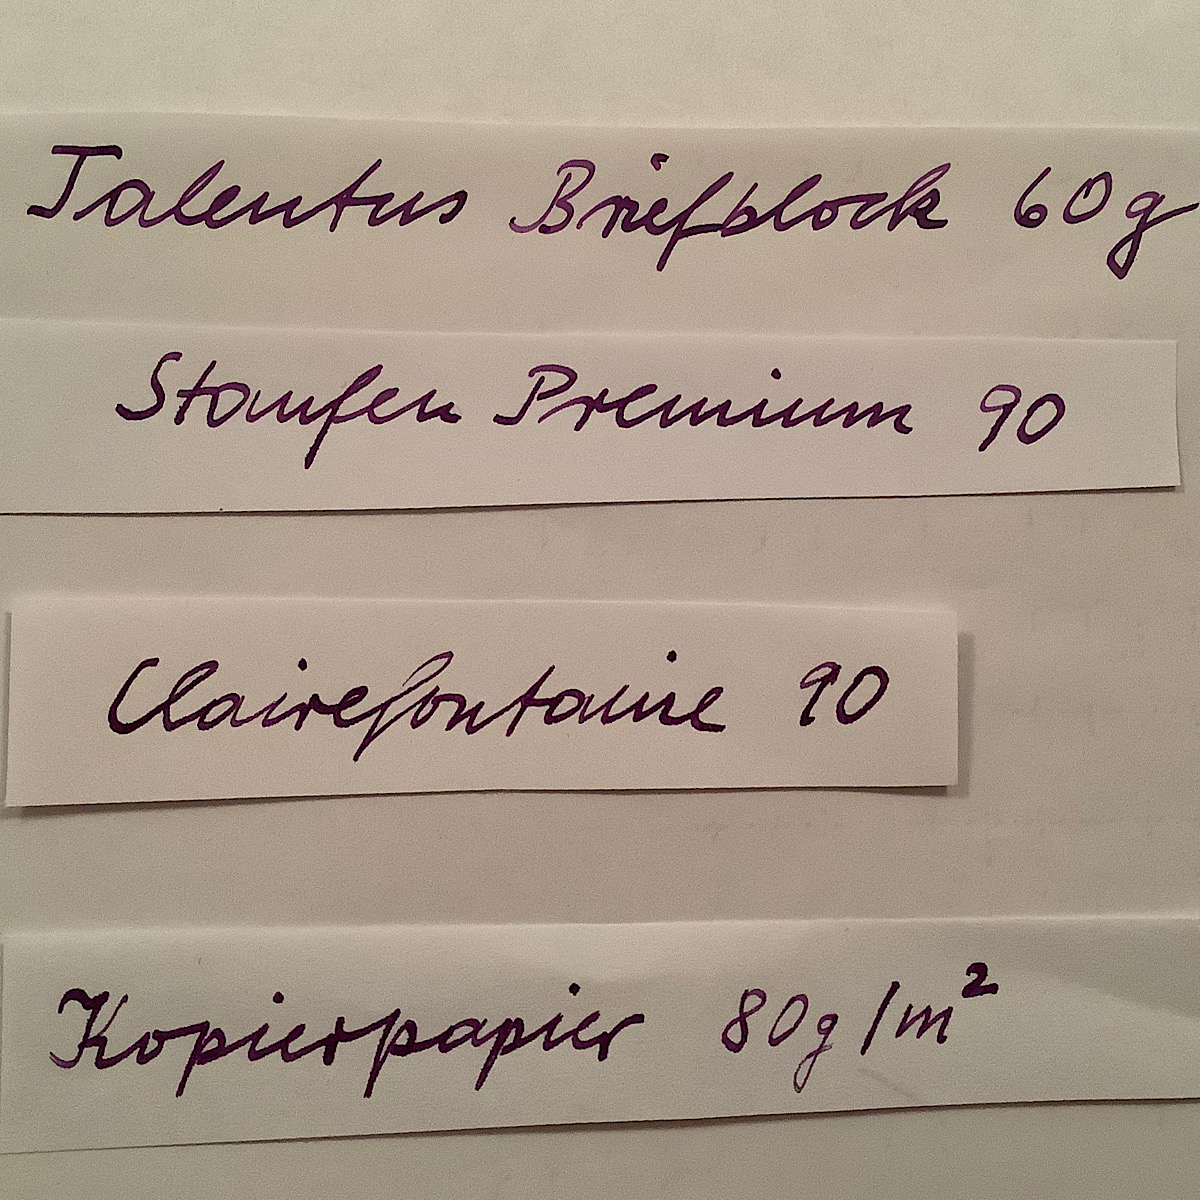 Talentus Briefblock 60g
Staufen Premium 90
Clairefontaine 90
Kopierpapier 80g/m²